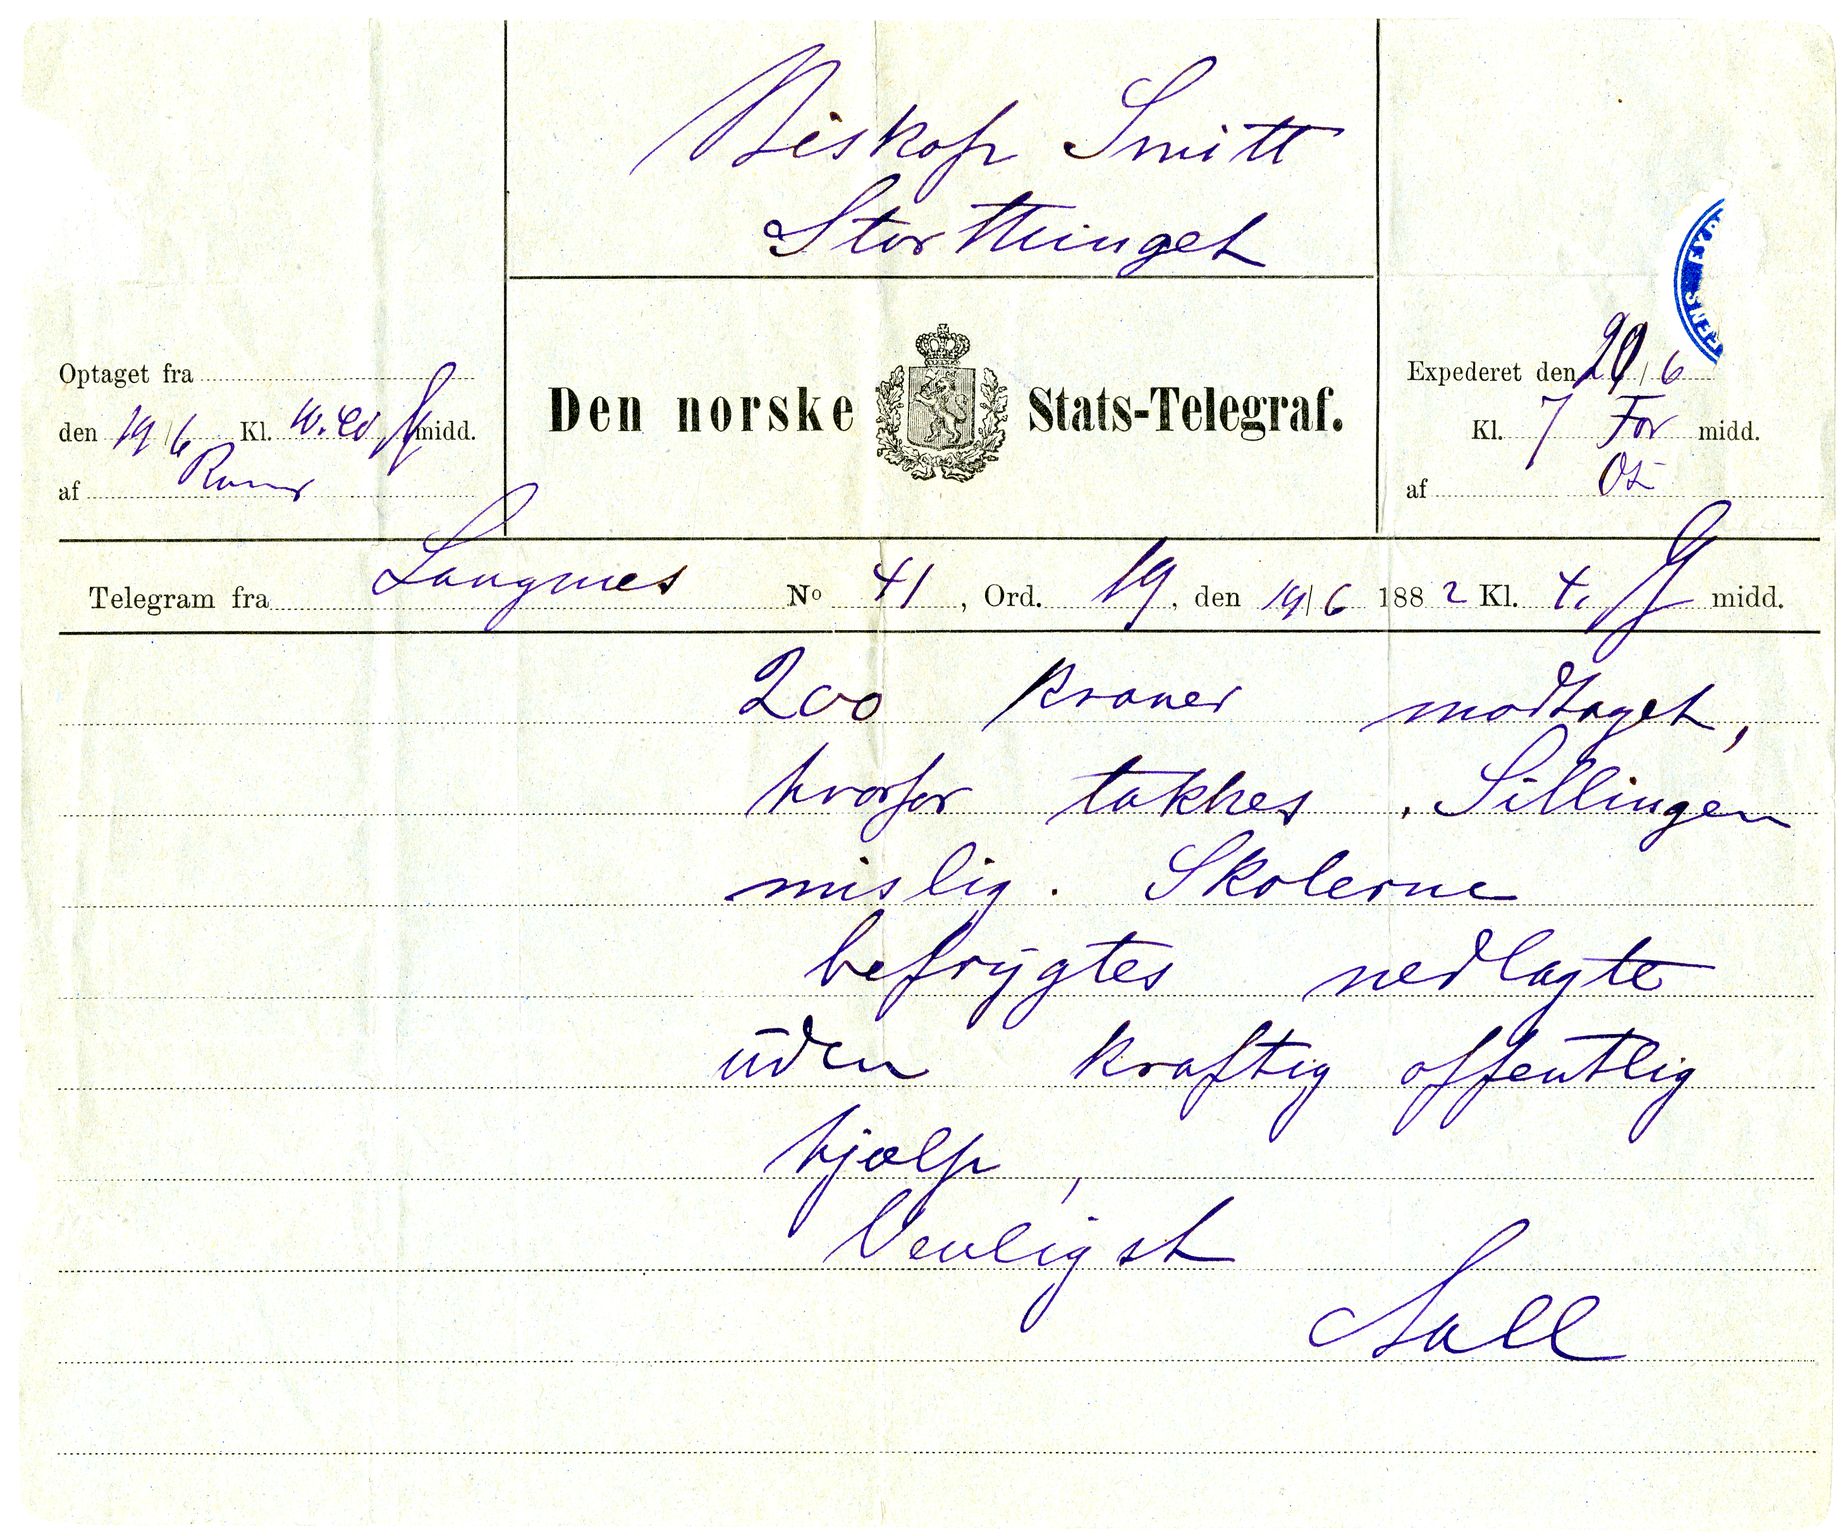 Biskop Smitt
Storthinget
Optaget fra
den 19/6 Kl. midd.
af
Den norske Stats-Telegraf.
Expederet den 20/6
Kl. 7 For midd.
af
Telegram fra Langnes No 41, Ord. 19, den 19/6 1882 Kl. 4. midd.
200 kroner modtaget,
hvorfor takkes. Stillingen
mislig. Skolerne
befrygtes nedlagte
uden kraftig offentlig
hjælp,
Venligst
Aall